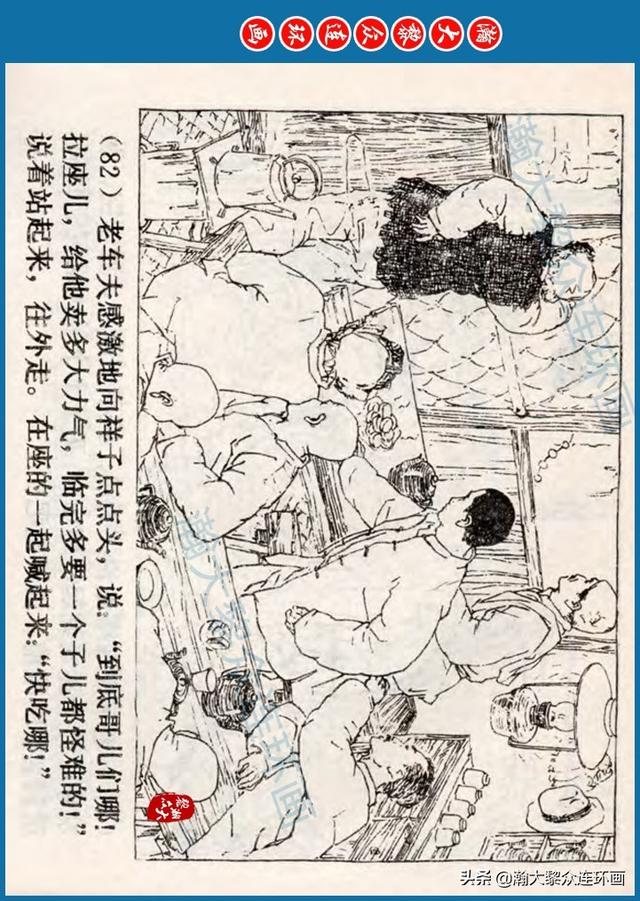 瀚大黎众连环画
(82) 老车夫感激地向祥子点点头，说：“到底哥儿们哪！
拉座儿，给他卖多大力气，临完多要一个子儿都怪难的！”
说着站起来，往外走。在座的一起喊起来：“快吃哪！”
瀚大黎众连环画
瀚大黎众连环画
瀚大黎众
头条 @瀚大黎众连环画